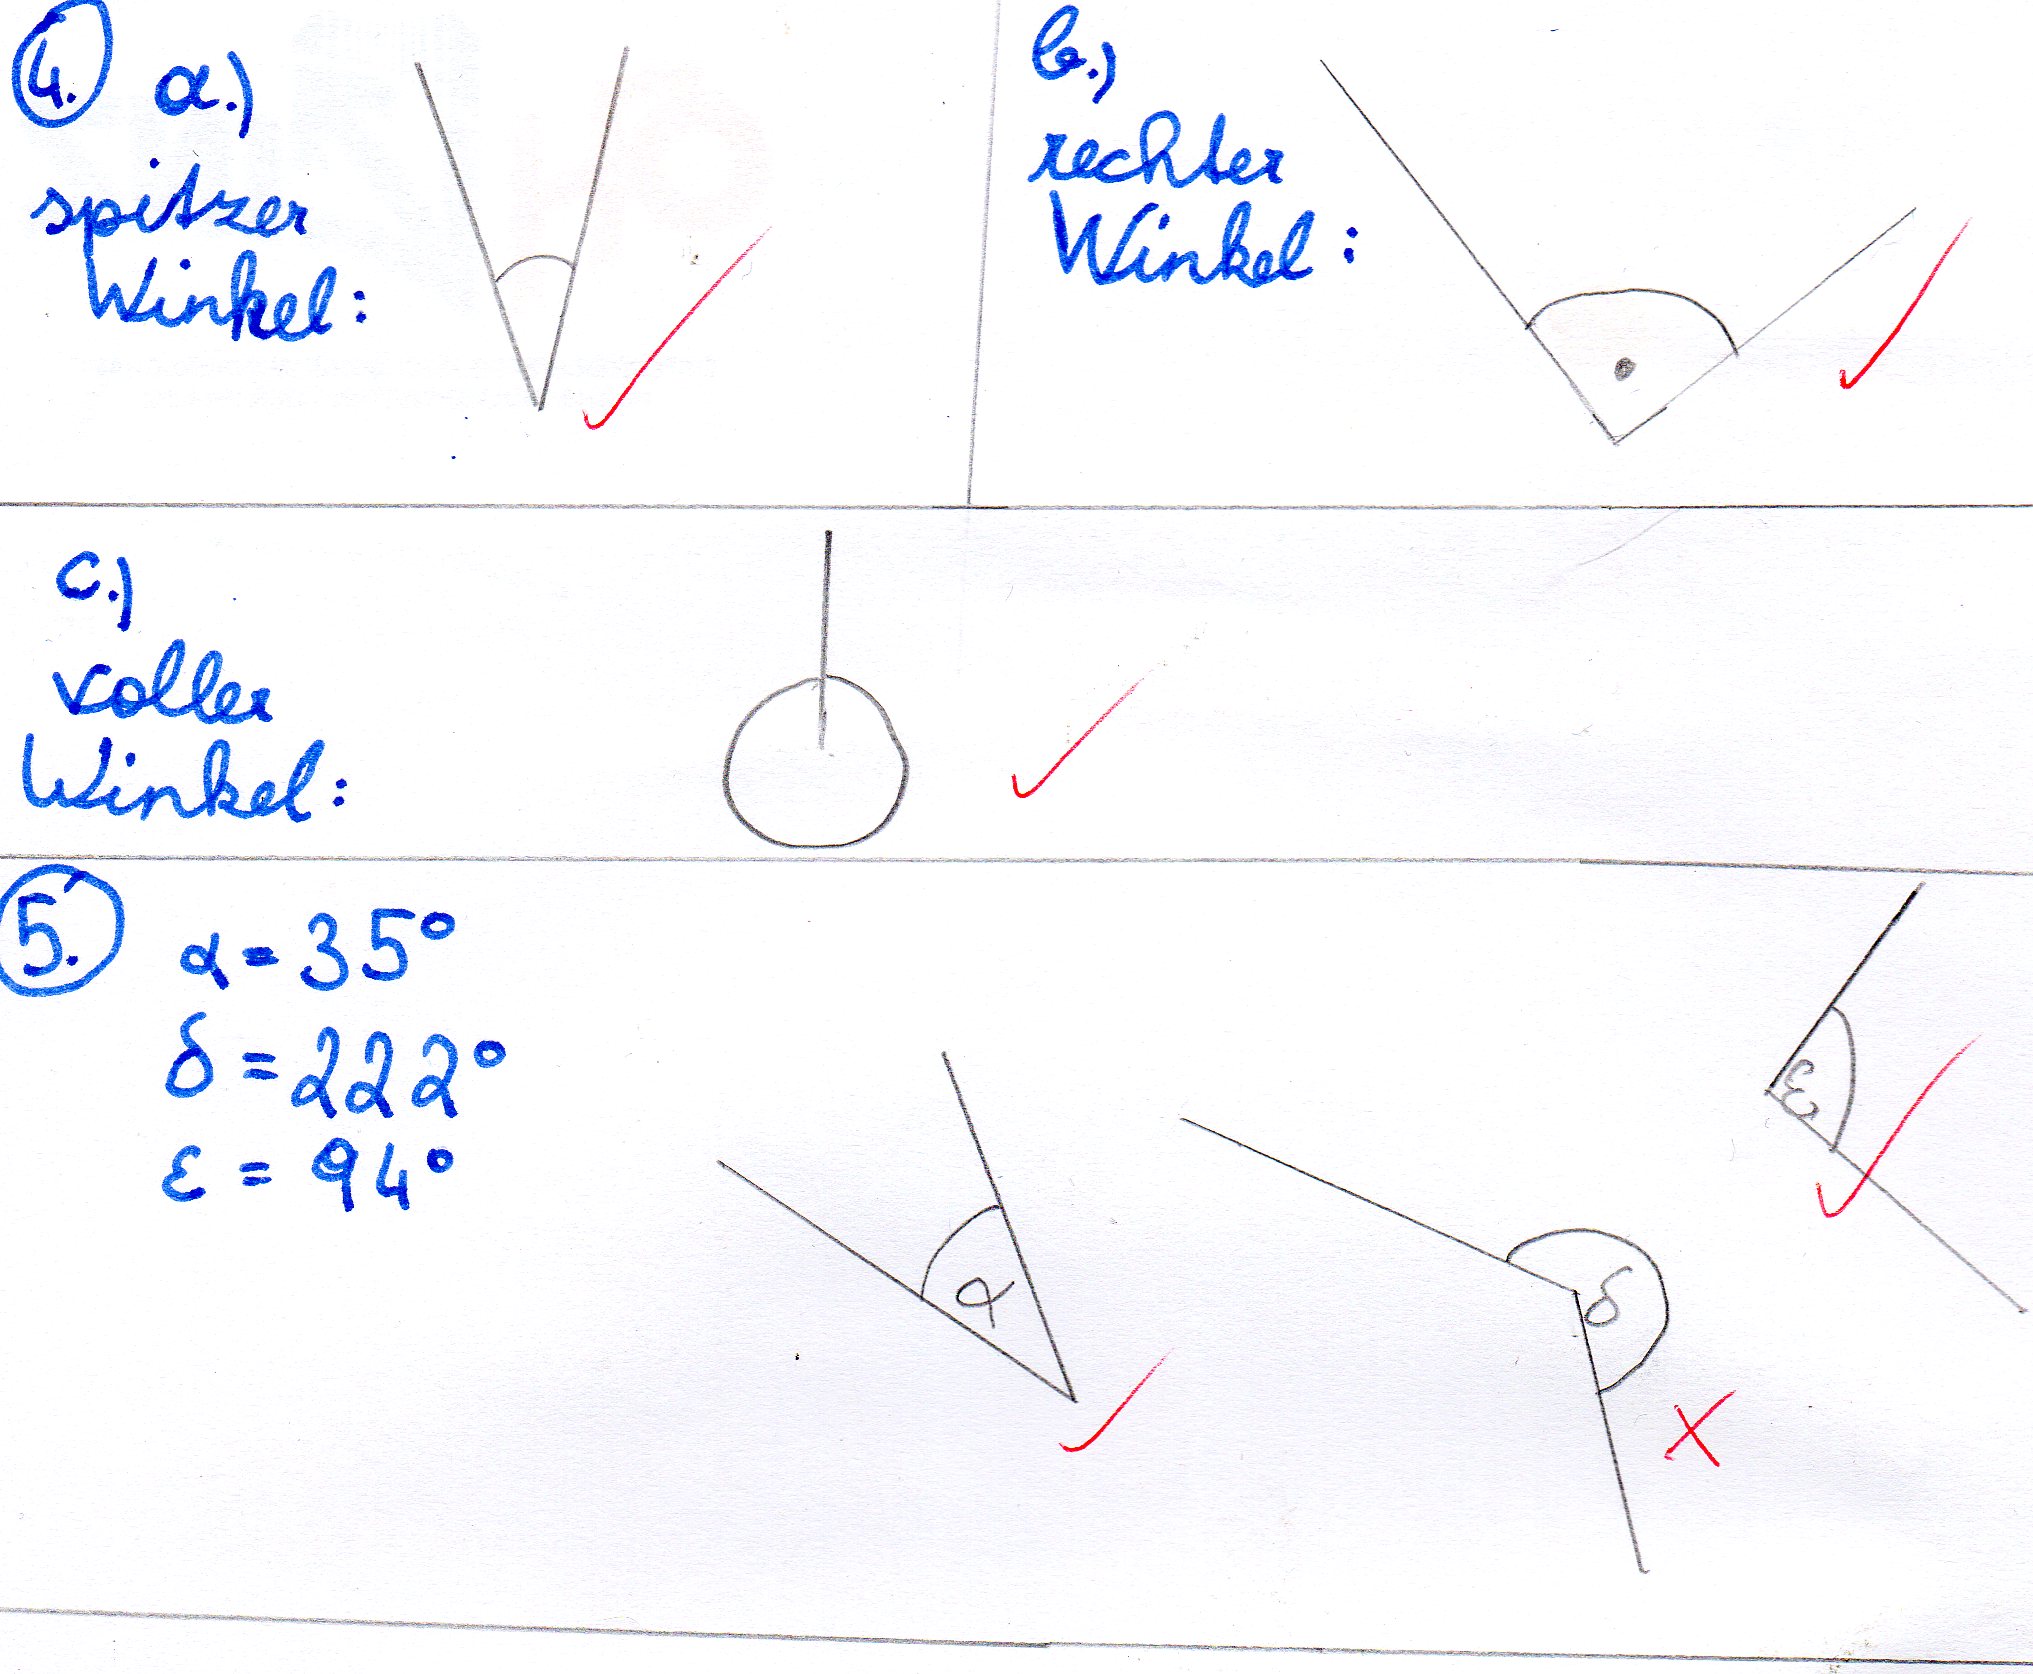 4. a.)
spitzer
Winkel:
b.)
rechter
Winkel:
c.)
voller
Winkel:
5. α = 35°
δ = 222°
ε = 94°
α
δ
ε